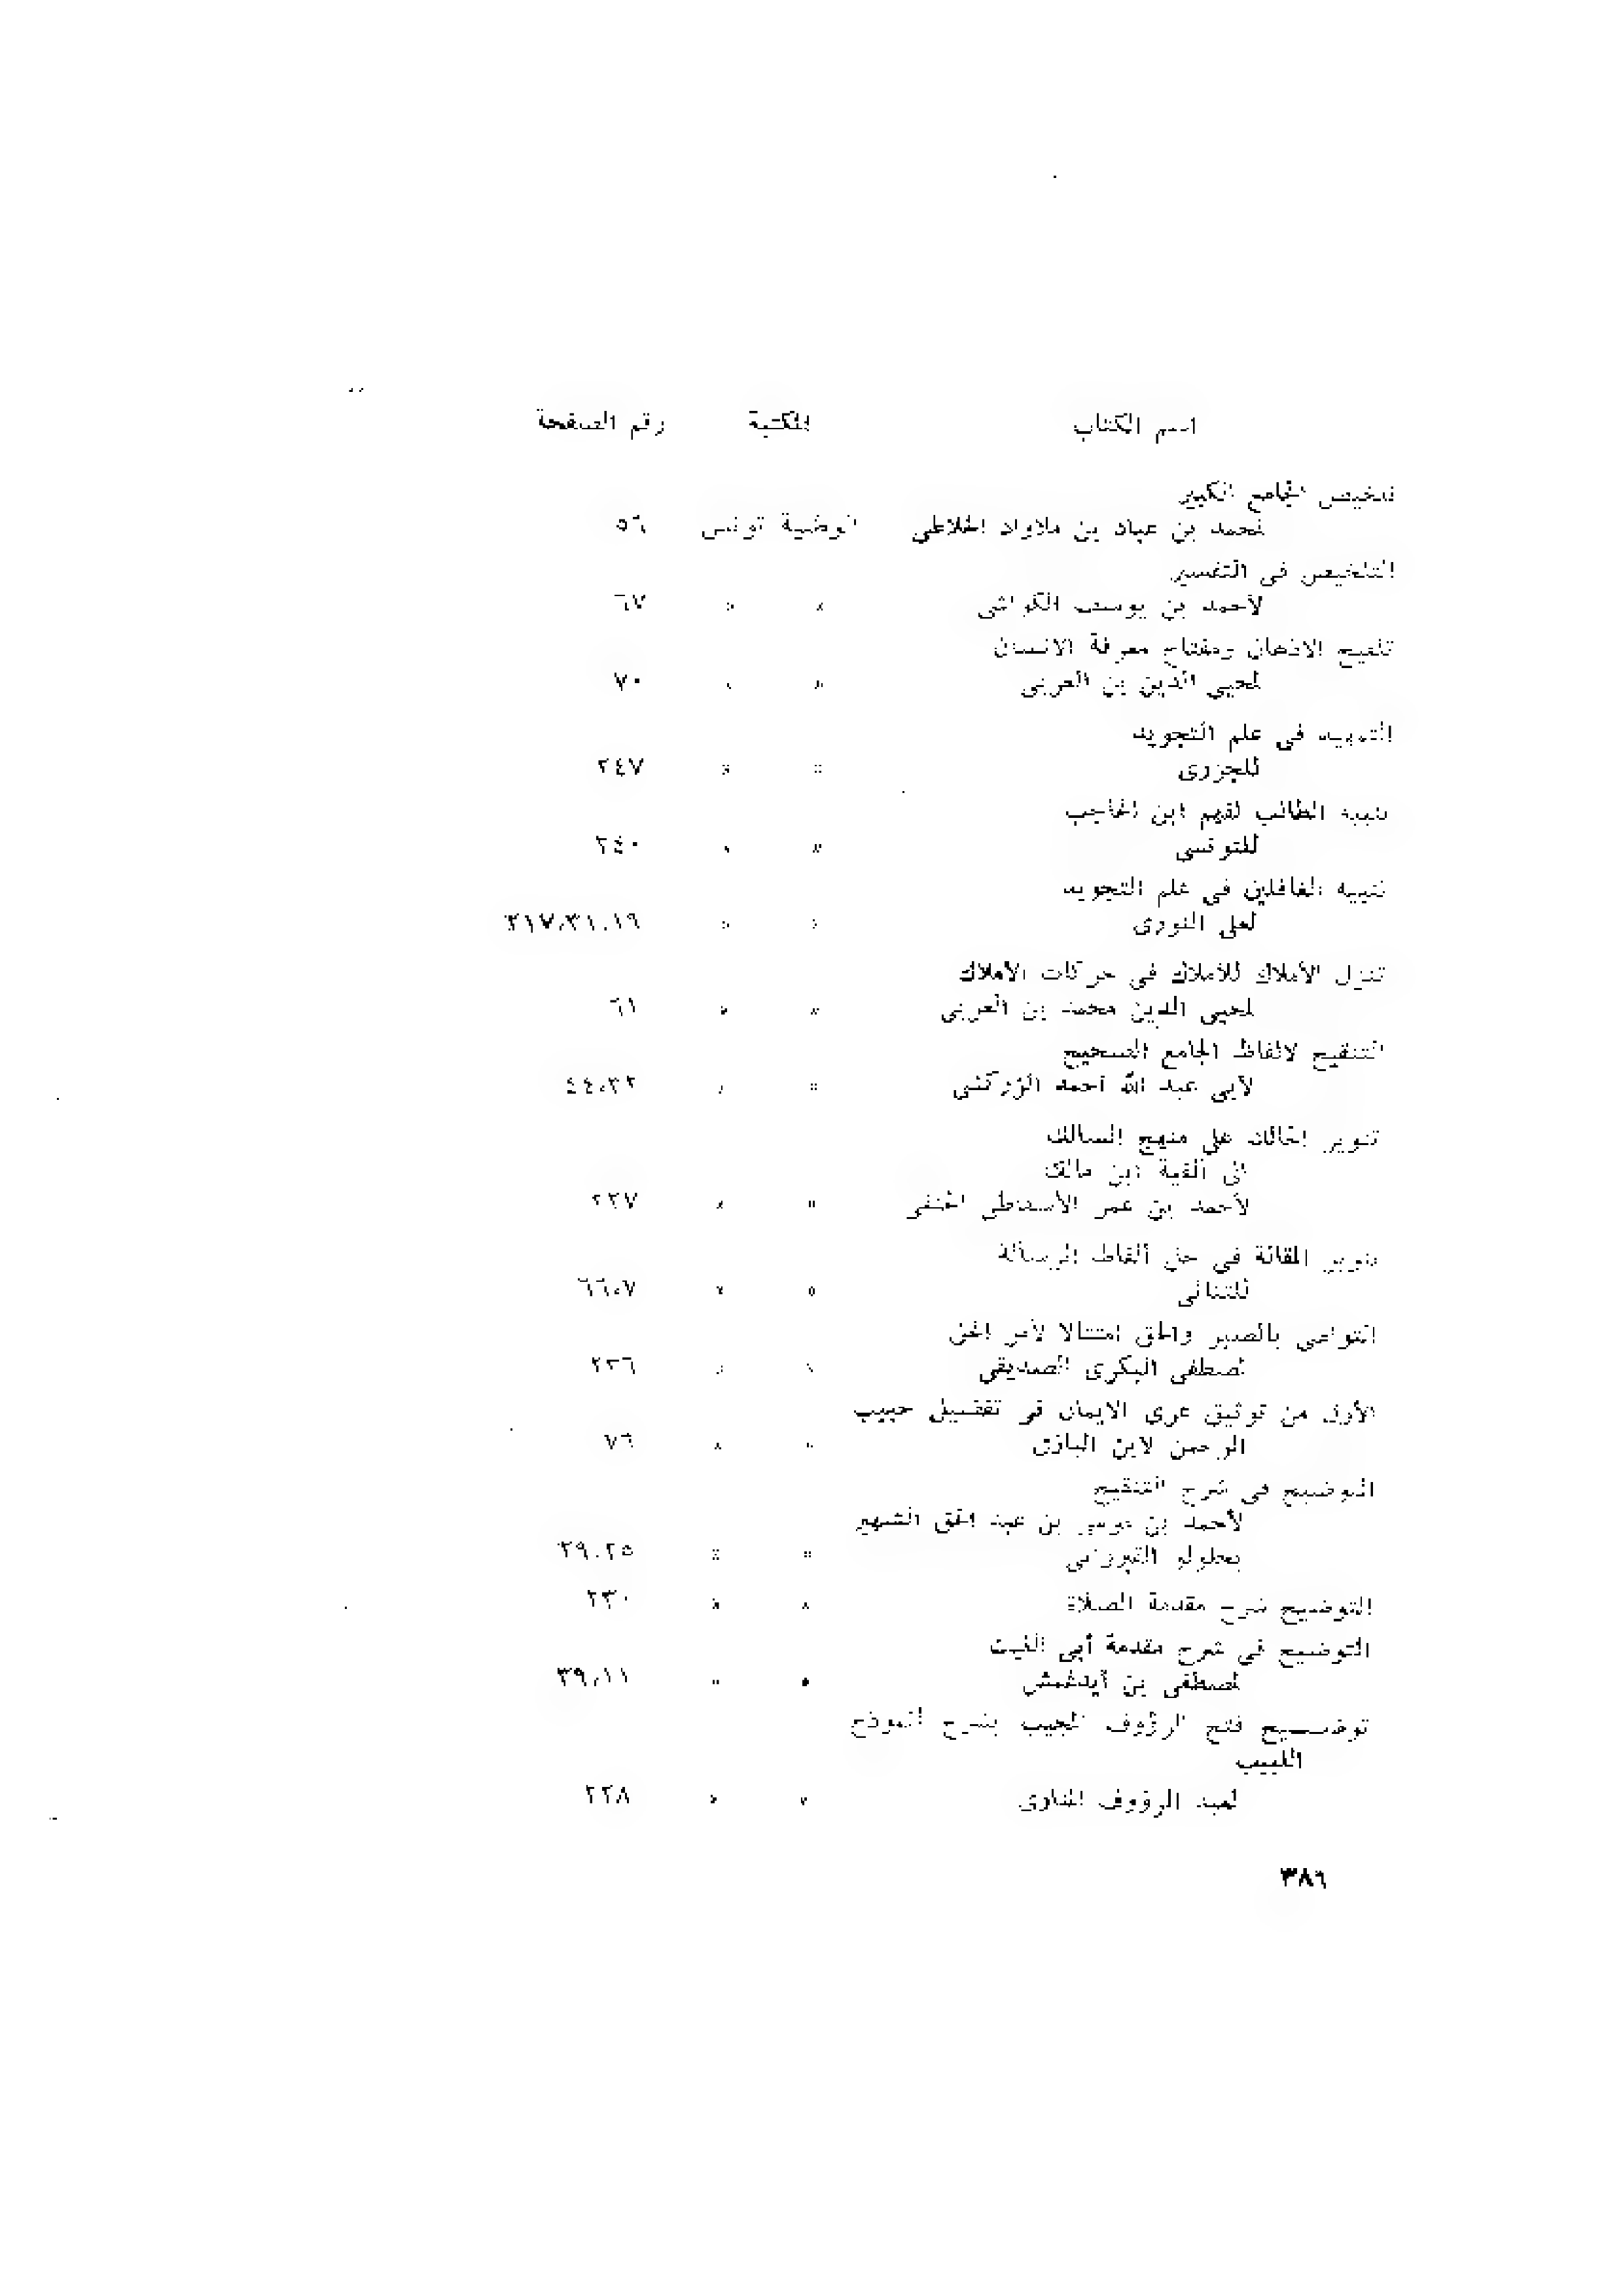 اسم الكتاب المكتبة رقم الصفحة
تلخيص الجامع الكبير
لمحمد بن عباد بن ملاواد الخلاطى الوطنية تونس ٥٦
التلخيص فى التفسير
لأحمد بن يوسف الكواشى » » ٦٧
تلقيح الاذهان ومفتاح معرفة الانسان
لمحيى الدين بن العربى » » ٧٠
التمهيد فى علم التجويد
للجزرى » » ٢٤٧
تنبيه الطالب لفهم ابن الحاجب
للتونسى » » ٢٤٠
تنبيه الغافلين فى علم التجويد
لعلى النورى » » ٢١٧،٣١،١٩
تنزل الأملاك للأملاك فى حركات الأملاك
لمحيى الدين محمد بن العربى » » ٦١
التنقيح لالفاظ الجامع الصحيح
لأبى عبد الله أحمد الزركشى » » ٤٤،٣٢
تنوير الحالك على منهج السالك
الى ألفية ابن مالك
لأحمد بن عمر الأسقاطى الحنفى » » ٢٢٧
تنوير المقالة فى حل ألفاظ الرسالة
للتتائى » » ٦٦،٧
التواصى بالصبر والحق امتثالا لأمر الحق
لمصطفى البكرى الصديقى » » ٢٣٦
الأول من توثيق عرى الايمان فى تفضيل حبيب
الرحمن لابن البازى » » ٧٦
التوضيح فى شرح التنقيح
لأحمد بن موسى بن عبد الحق الشهير
بحلولو القيروانى » » ٢٩،٢٥
التوضيح شرح مقدمة الصلاة » » ٢٣٠
التوضيح فى شرح مقدمة أبى الليث
لمصطفى بن أيدغمش » » ٣٩،١١
توضيح فتح الرؤوف المجيب بشرح انموذج
اللبيب
لعبد الرؤوف المناوى » » ٢٢٨
٣٨٦